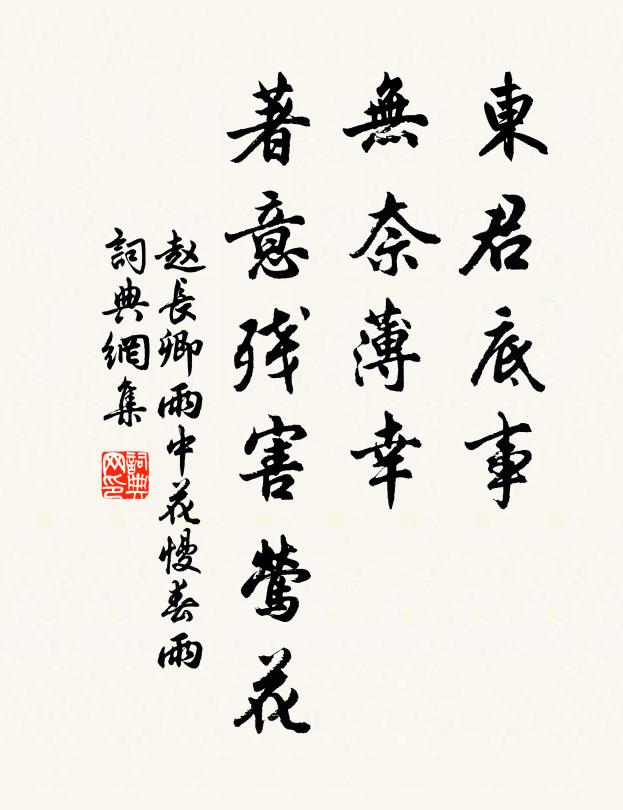 東君底事
無奈薄幸
著意残害莺花
赵長卿雨中花慢春雨
詞典網集
詞典
网印